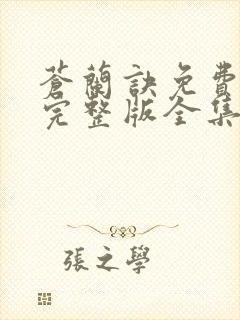 蒼蘭訣免費
完整版全集
張之學